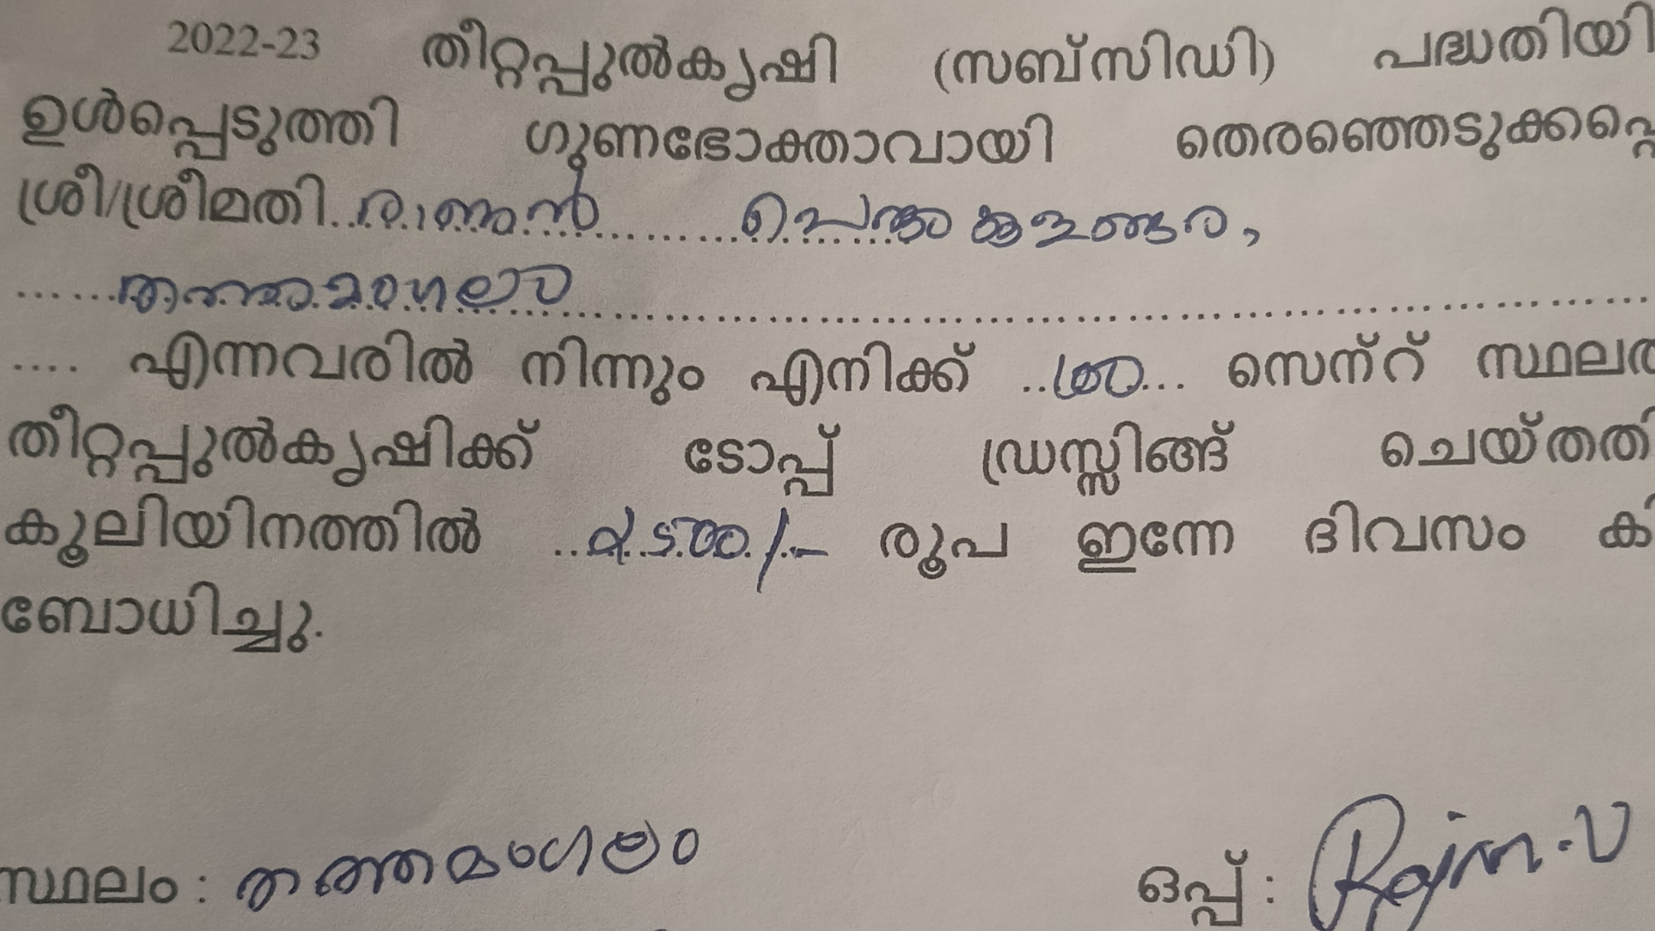 2022-23 തീറ്റപ്പുൽകൃഷി (സബ്സിഡി) പദ്ധതിയി
ഉൾപ്പെടുത്തി ഗുണഭോക്താവായി തെരഞ്ഞെടുക്കപ്പെ
ശ്രീ/ശ്രീമതി..
......തത്തമംഗലം......
.... എന്നവരിൽ നിന്നും എനിക്ക് ..... സെന്റ് സ്ഥലത
തീറ്റപ്പുൽകൃഷിക്ക് ടോപ്പ് ഡ്രസ്സിങ്ങ് ചെയ്തതി
കൂലിയിനത്തിൽ ..... രൂപ ഇന്നേ ദിവസം കി
ബോധിച്ചു.
സ്ഥലം : തത്തമംഗലം ഒപ്പ് :